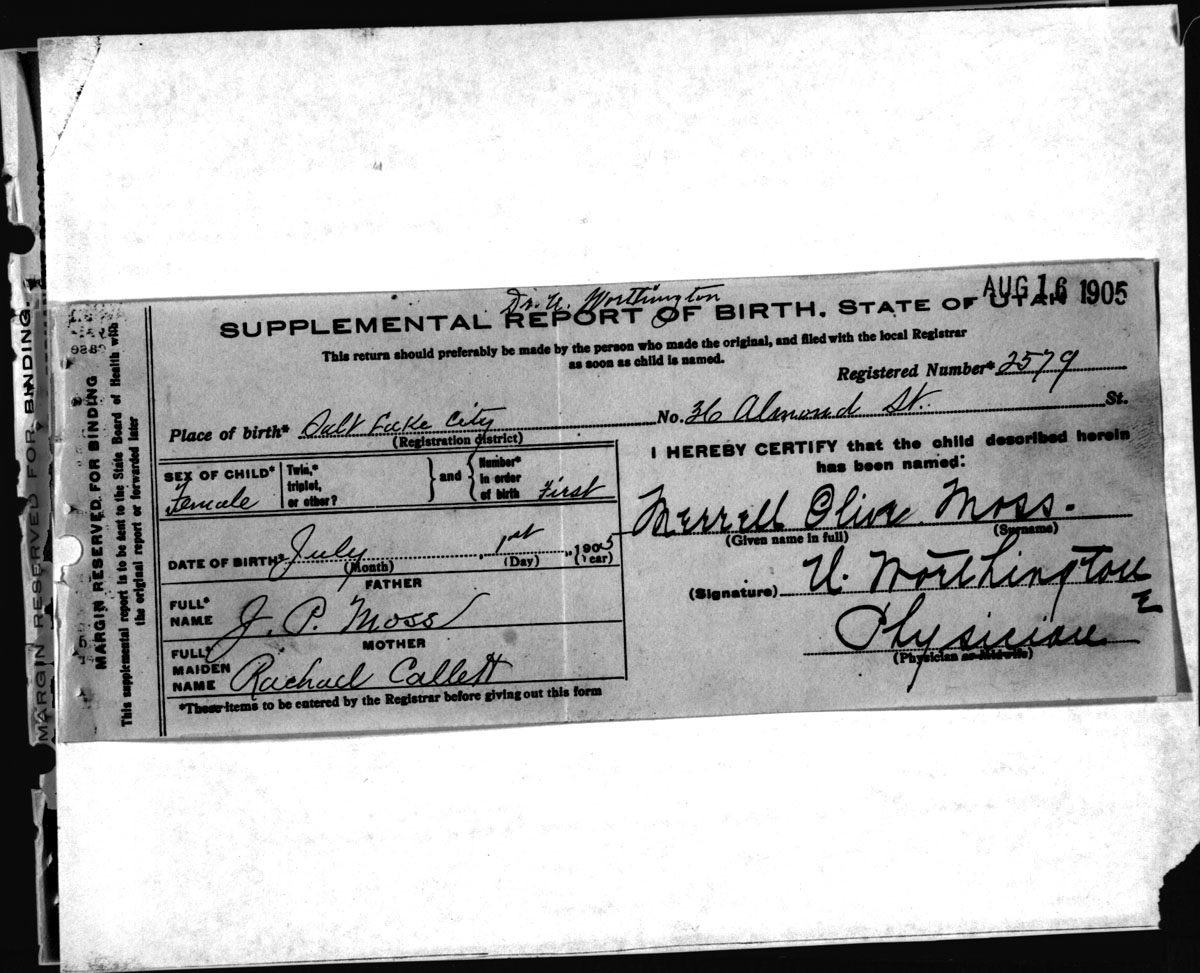 AUG 16 1905
Dr. U. Worthington
SUPPLEMENTAL REPORT OF BIRTH. STATE OF UTAH
This return should preferably be made by the person who made the original, and filed with the local Registrar
as soon as child is named.
Registered Number* 2579
Place of birth* Salt Lake City No. 36 Almond St. St.
(Registration district)
SEX OF CHILD* Female
Twin,* triplet, or other? and Number* in order of birth First
DATE OF BIRTH* July 1st 1905
(Month) (Day) (Year)
FATHER
FULL* NAME J. P. Moss
MOTHER
FULL* MAIDEN NAME Rachael Callett
*These items to be entered by the Registrar before giving out this form
I HEREBY CERTIFY that the child described herein
has been named:
Merrell Olive Moss.
(Given name in full) (Surname)
(Signature) U. Worthington
Physician
(Physician or Midwife)
MARGIN RESERVED FOR BINDING
This supplemental report is to be sent to the State Board of Health with
the original report or forwarded later
MARGIN RESERVED FOR BINDING.